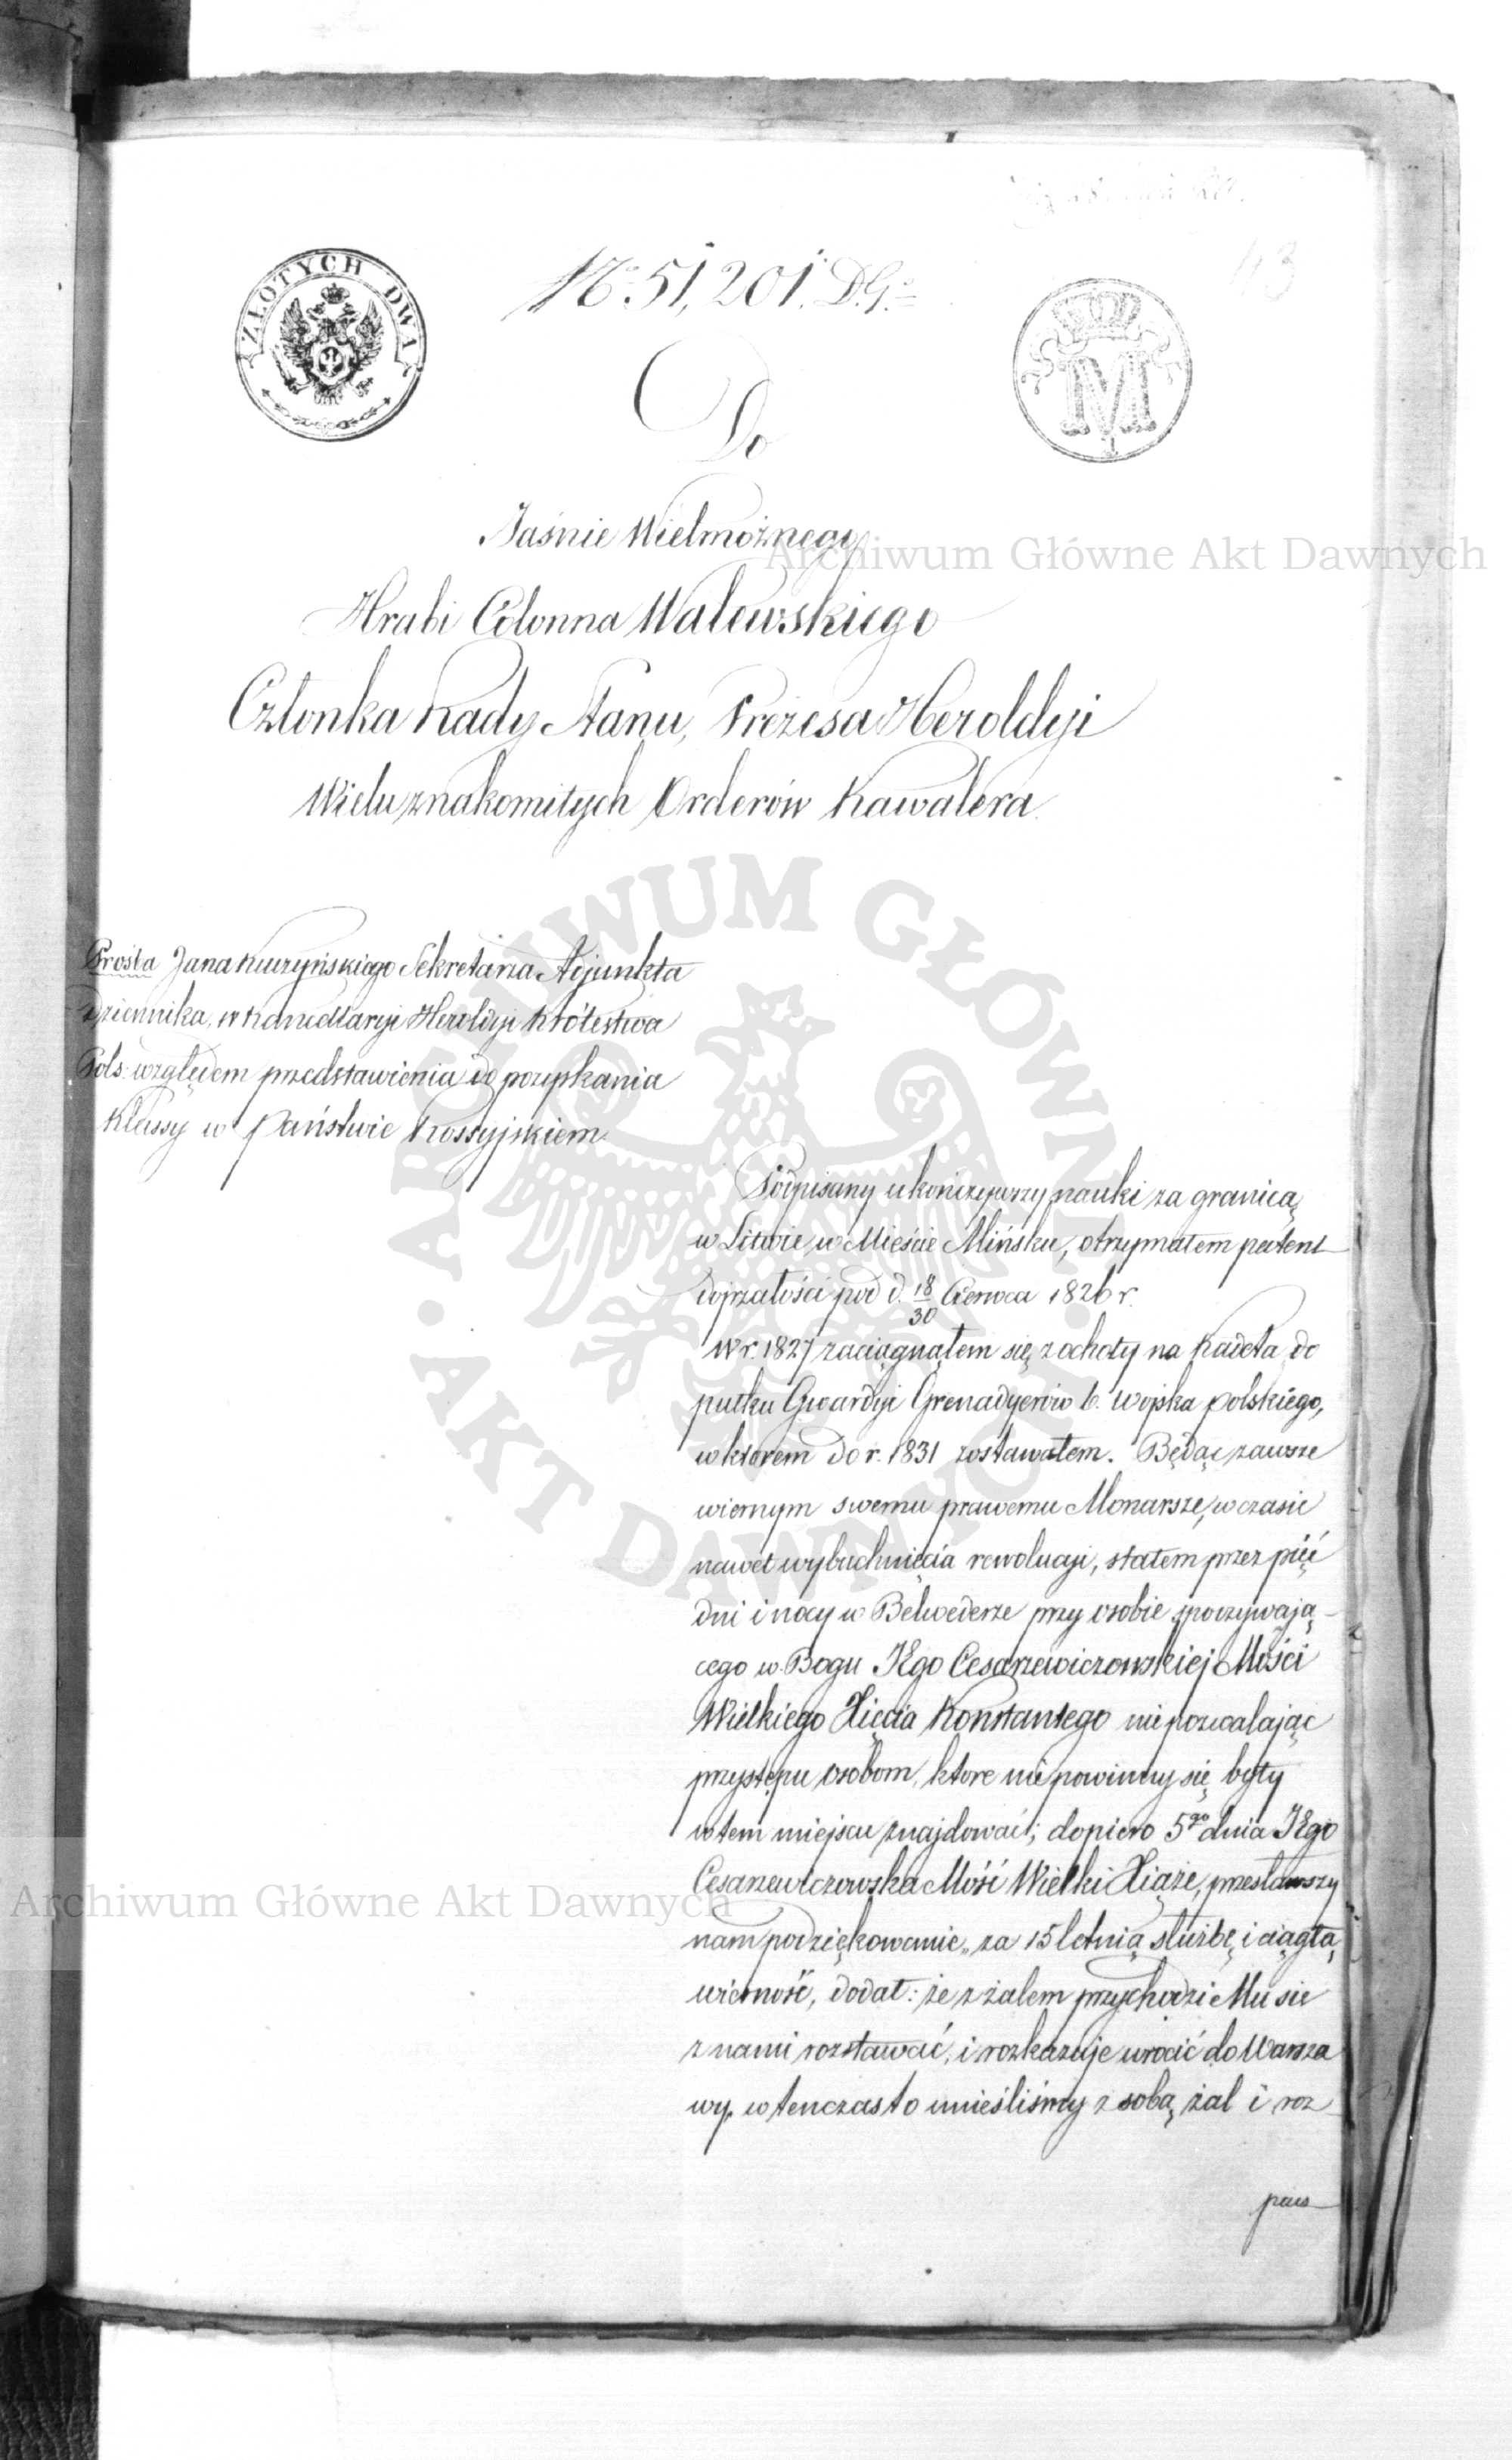 43
ZŁOTYCH DWA
No 51,201. D.G.
M
I
Do
Jaśnie Wielmożnego
Hrabi Colonna Walewskiego
Członka Rady Stanu, Prezesa Heroldyi
Wielu znakomitych Orderów Kawalera.
Prośba Jana Kuczyńskiego Sekretarza Adjunkta
Dziennika, w Kancellaryi Heroldyi Królestwa
Pols: względem przedstawienia do pozyskania
Klassy w Państwie Rossyjskiem
Podpisany ukończywszy nauki za granicą
w Litwie w Mieście Mińsku, otrzymałem patent
dojrzałości pod d. 18/30 Czerwca 1826 r.
W r. 1827 zaciągnąłem się z ochoty na Kadeta do
pułku Gwardyi Grenadyerów b. wojska polskiego,
w ktorem do r. 1831 zostawałem. Będąc zawsze
wiernym swemu prawemu Monarsze, w czasie
nawet wybuchnięcia rewolucyi, stałem przez pięć
dni i nocy w Belwederze przy osobie spoczywają-
cego w Bogu Jego Cesarzewiczowskiej Mości
Wielkiego Xięcia Konstantego nie pozwalając
przystępu osobom, ktore nie powinny się były
w tem miejscu znajdować; dopiero 5go dnia Jego
Cesarzewiczowska Mość Wielki Xiąże, przesławszy
nam podziękowanie, za 15 letnią służbę i ciągłą
wierność, dodał: że z żalem przychodzi Mu sie
z nami rozstawać, i rozkazuje wrocić do Warsza
wy. w tenczas to unieśliśmy z sobą żal i roz
pacz
Archiwum Główne Akt Dawnych
Archiwum Główne Akt Dawnych
ARCHIWUM GŁÓWNE · AKT DAWNYCH ·